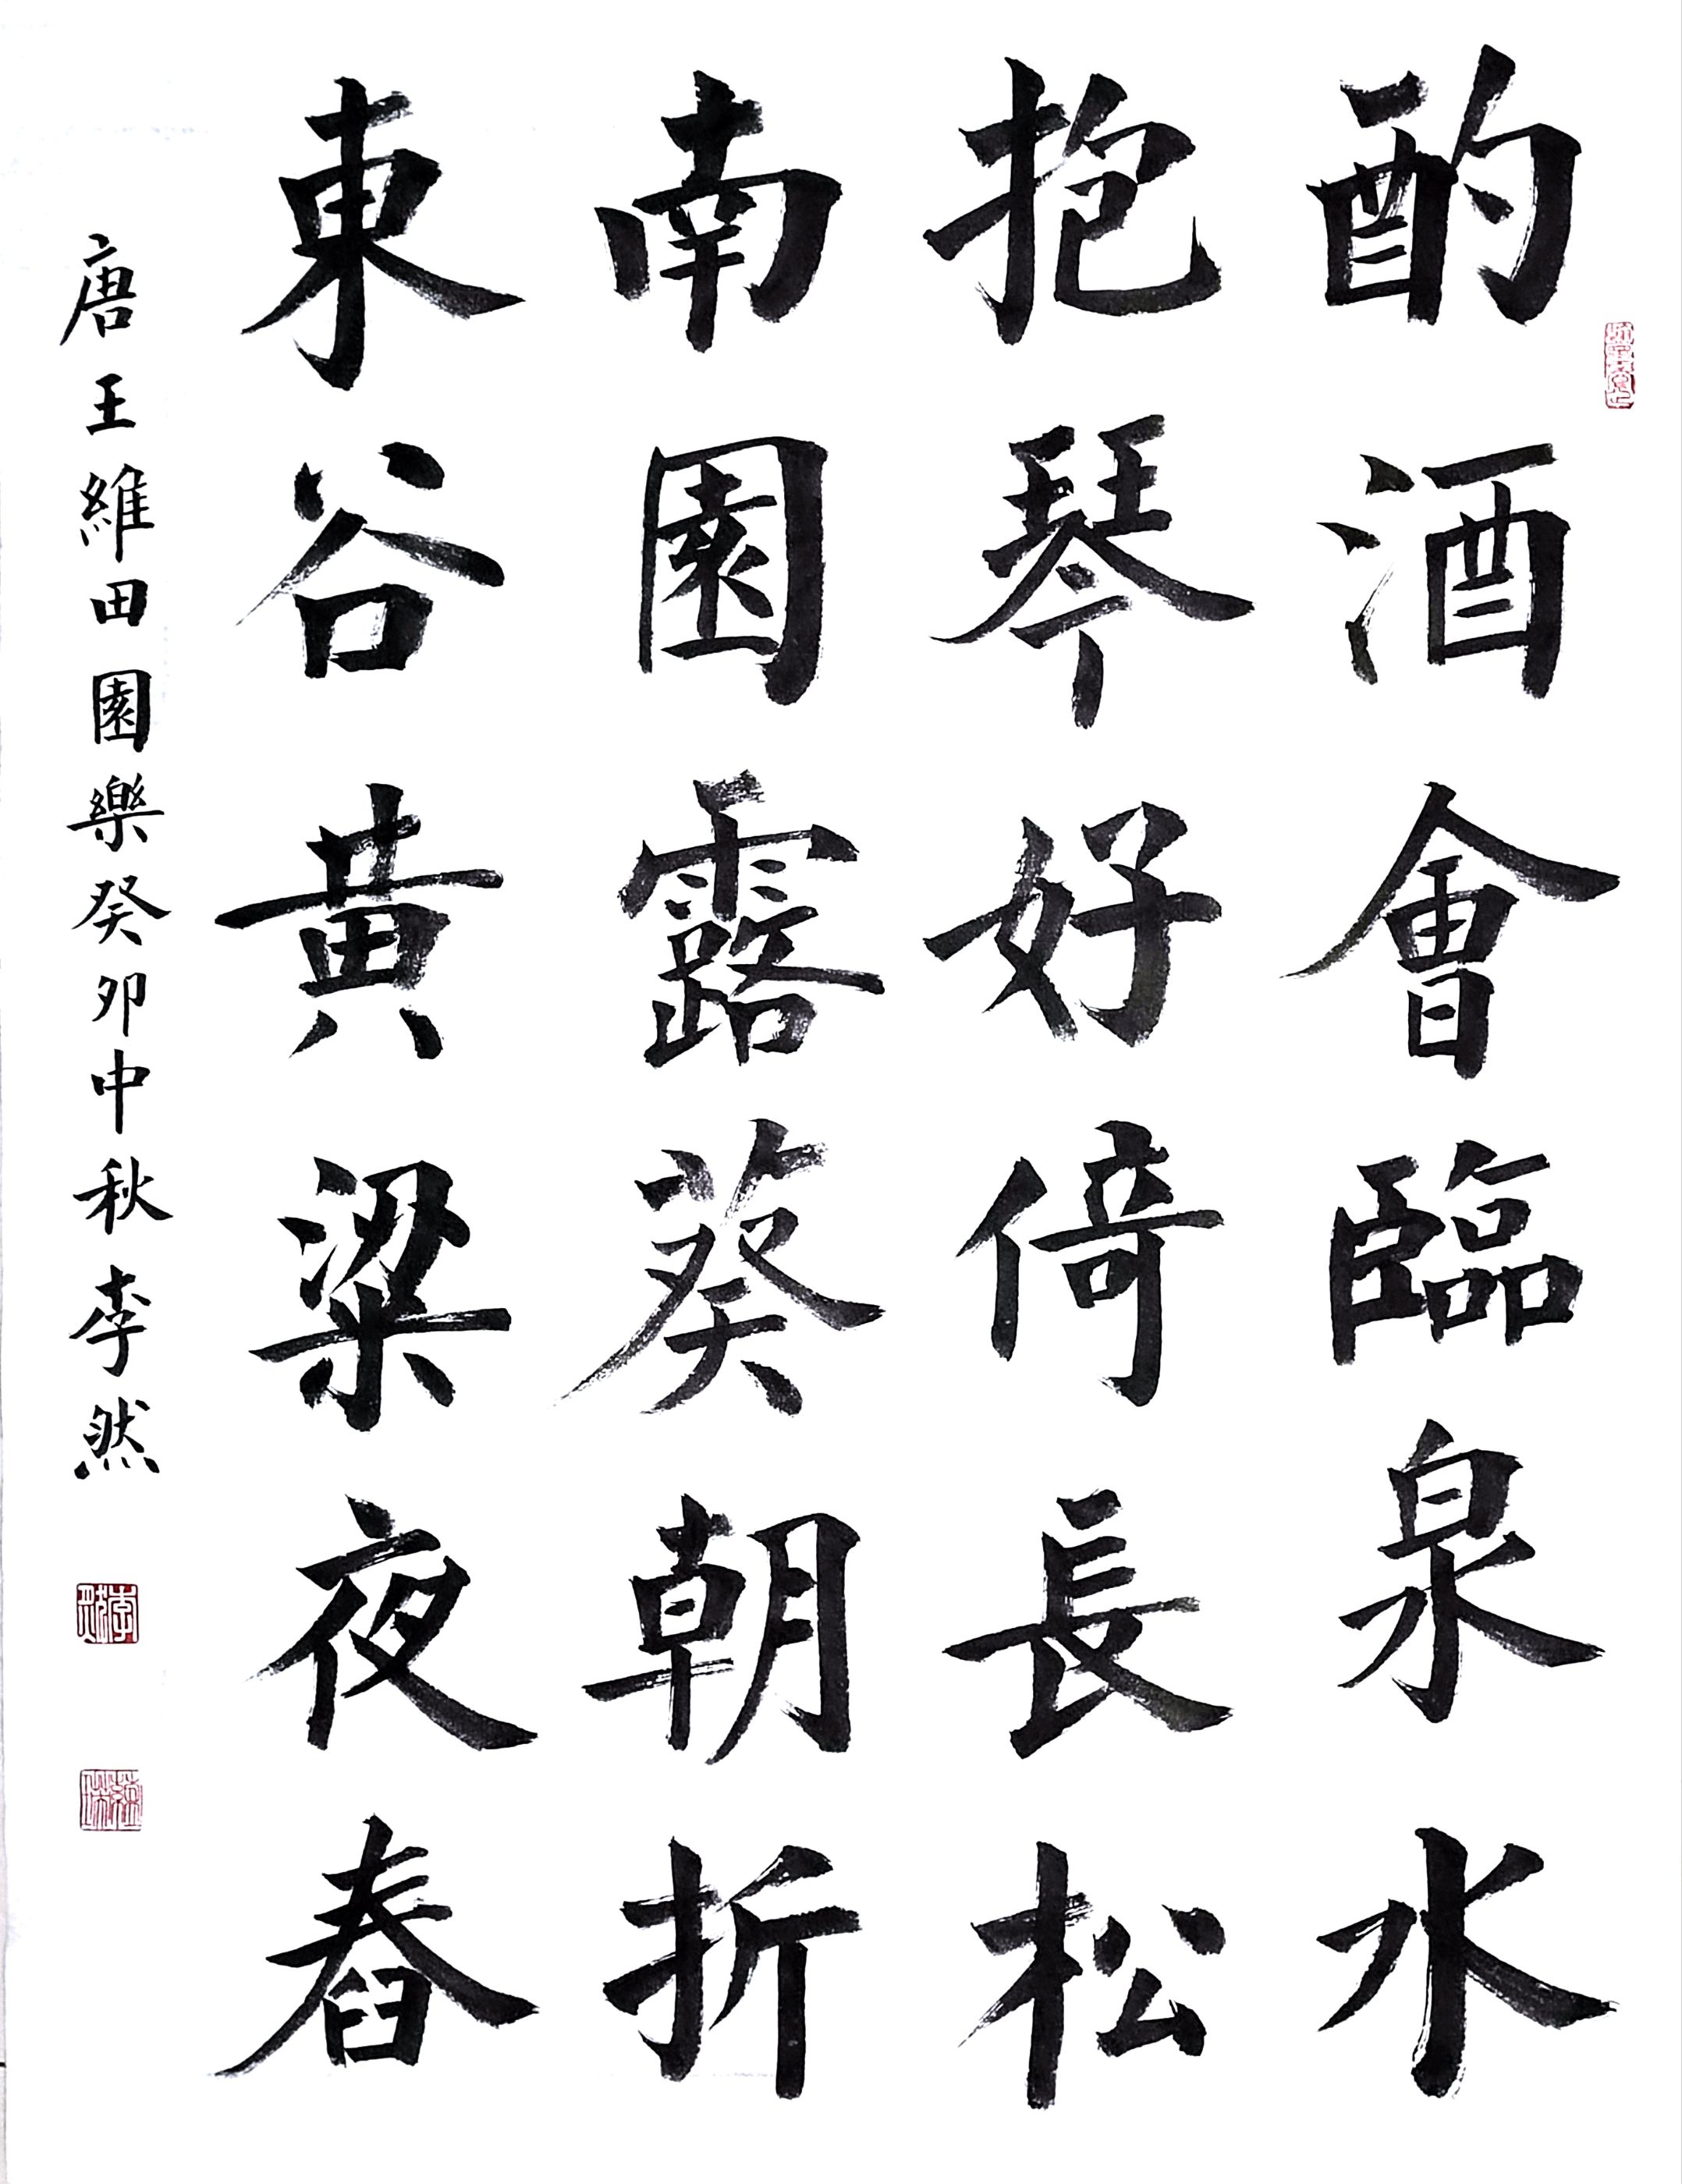 酌酒會臨泉水
抱琴好倚長松
南園露葵朝折
東谷黃粱夜舂
唐王維田園樂癸卯中秋李然
李然